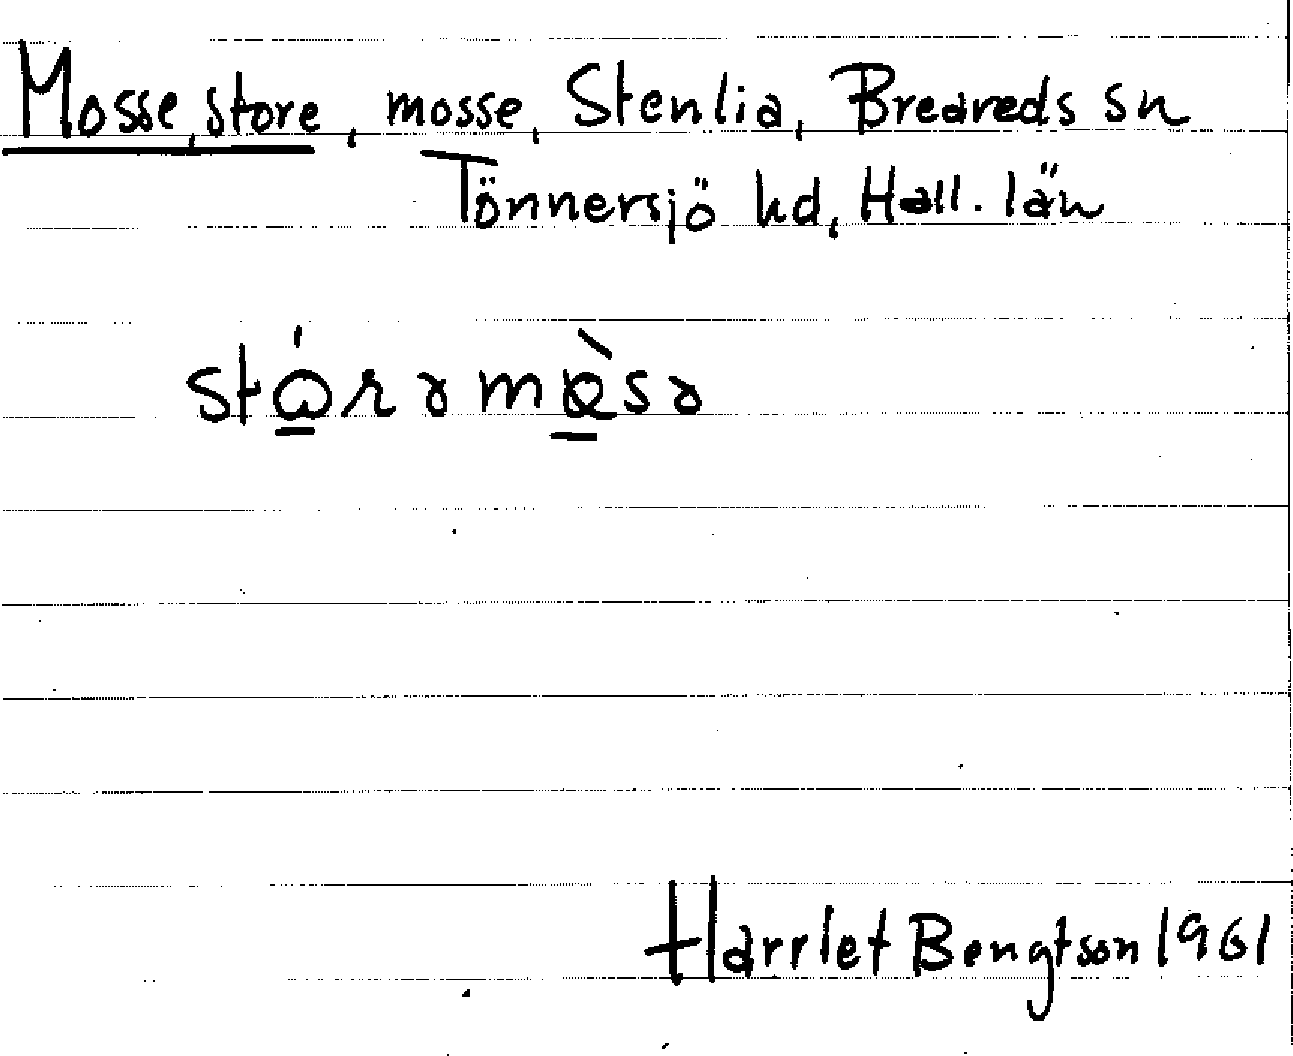 Mosse, store, mosse, Stenlia, Breareds sn
Tönnersjö hd, Hall. län
Harriet Bengtson 1961